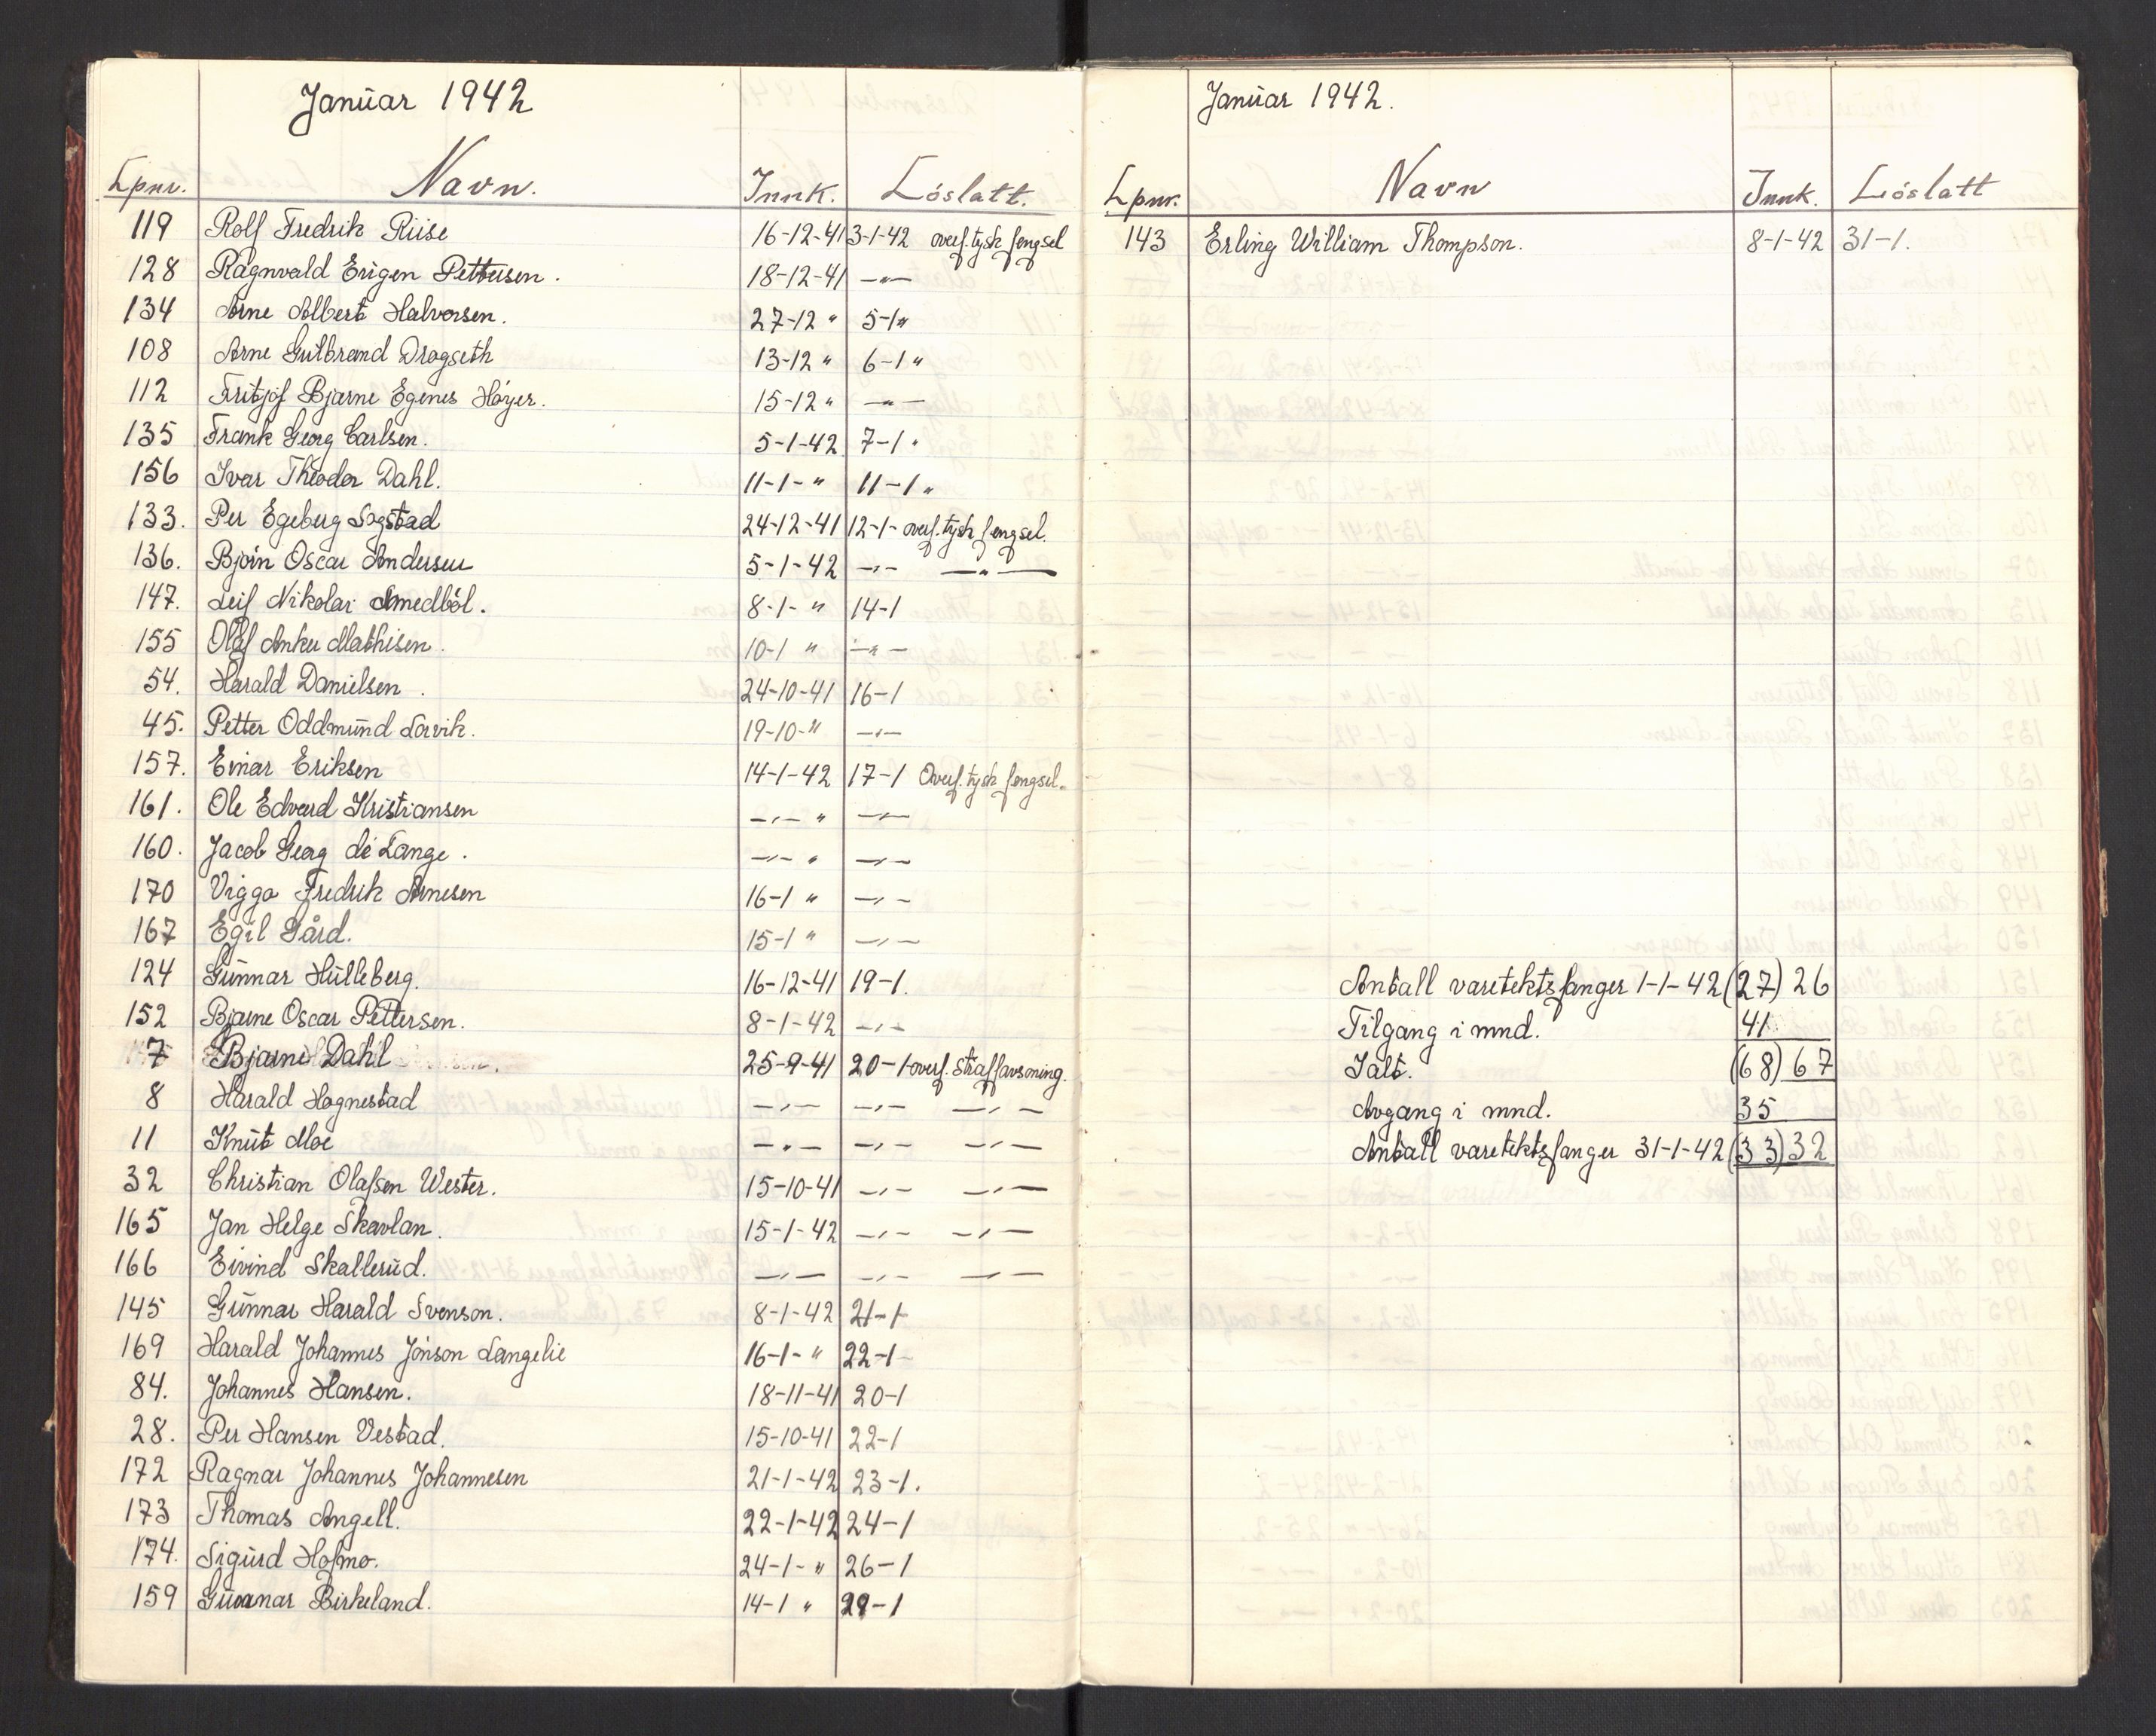 Januar 1942
Lpnr. Navn. Innk. Löslatt.
119 Rolf Fredrik Riise 16-12-41 3-1-42 overf. tysk fengsel
128 Ragnvald Eugen Pettersen. 18-12-41 —"—
134 Arne Albert Halvorsen. 27-12 " 5-1 "
108 Arne Gulbrand Dragseth 13-12 " 6-1 "
112 Fritjof Bjarne Egenes Höyer. 15-12 " —"—
135 Frank Georg Carlsen. 5-1-42 7-1 "
156 Ivar Theodor Dahl. 11-1- " 11-1 "
133. Per Egeberg Sogstad 24-12-41 12-1- overf. tysk fengsel.
136. Björn Oscar Andersen 5-1-42 —"— —"—
147. Leif Nikolai Smedböl. 8-1- " 14-1
155 Olaf Anker Mathisen. 10-1 " —"—
54. Harald Danielsen. 24-10-41 16-1
45. Petter Oddmund Lorvik. 19-10-" —"—
157. Einar Eriksen 14-1-42 17-1 Overf. tysk fengsel.
161. Ole Edvard Kristiansen —"— " —"—
160. Jacob Georg de Lange. —"— " —"—
170 Viggo Fredrik Arnesen 16-1 " —"—
167 Egil Gård. 15-1 " —"—
124 Gunnar Hulleberg. 16-12-41 19-1.
152 Bjarne Oscar Pettersen. 8-1-42 —"—
7 Bjarne Dahl 25-9-41 20-1-overf. straffavsoning.
8 Harald Hognestad —"— —"— —"—
11 Knut Moe —"— —"— —"—
32 Christian Olafsen Wester. 15-10-41 —"— —"—
165 Jan Helge Skavlan. 15-1-42 —"— —"—
166 Eivind Skallerud. —"— —"— —"—
145 Gunnar Harald Svenson. 8-1-42 21-1
169 Harald Johannes Jonson Langelie 16-1- " 22-1
84. Johannes Hansen. 18-11-41 20-1
28. Per Hansen Vestad. 15-10-41 22-1
172 Ragnar Johannes Johannesen 21-1-42 23-1.
173 Thomas Angell. 22-1-42 24-1
174. Sigurd Hofmo. 24-1- " 26-1
159 Gunnar Birkeland. 14-1 " 29-1
Januar 1942.
Lpnr. Navn Innk. Löslatt
143 Erling William Thompson. 8-1-42 31-1.
Antall varetektsfanger 1-1-42 (27) 26
Tilgang i mnd. 41
Ialt. (68) 67
Avgang i mnd. 35
Antall varetektsfanger 31-1-42 (33) 32